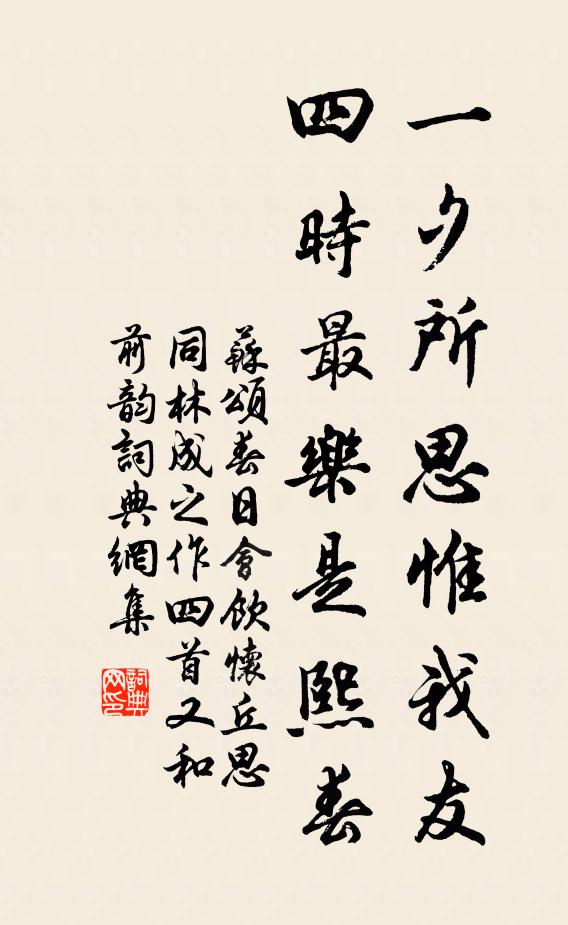 一夕所思惟我友
四時最樂是熙春
蘇頌春日會飲懷丘思
同林成之作四首又和
前韵詞典網集
詞典网印